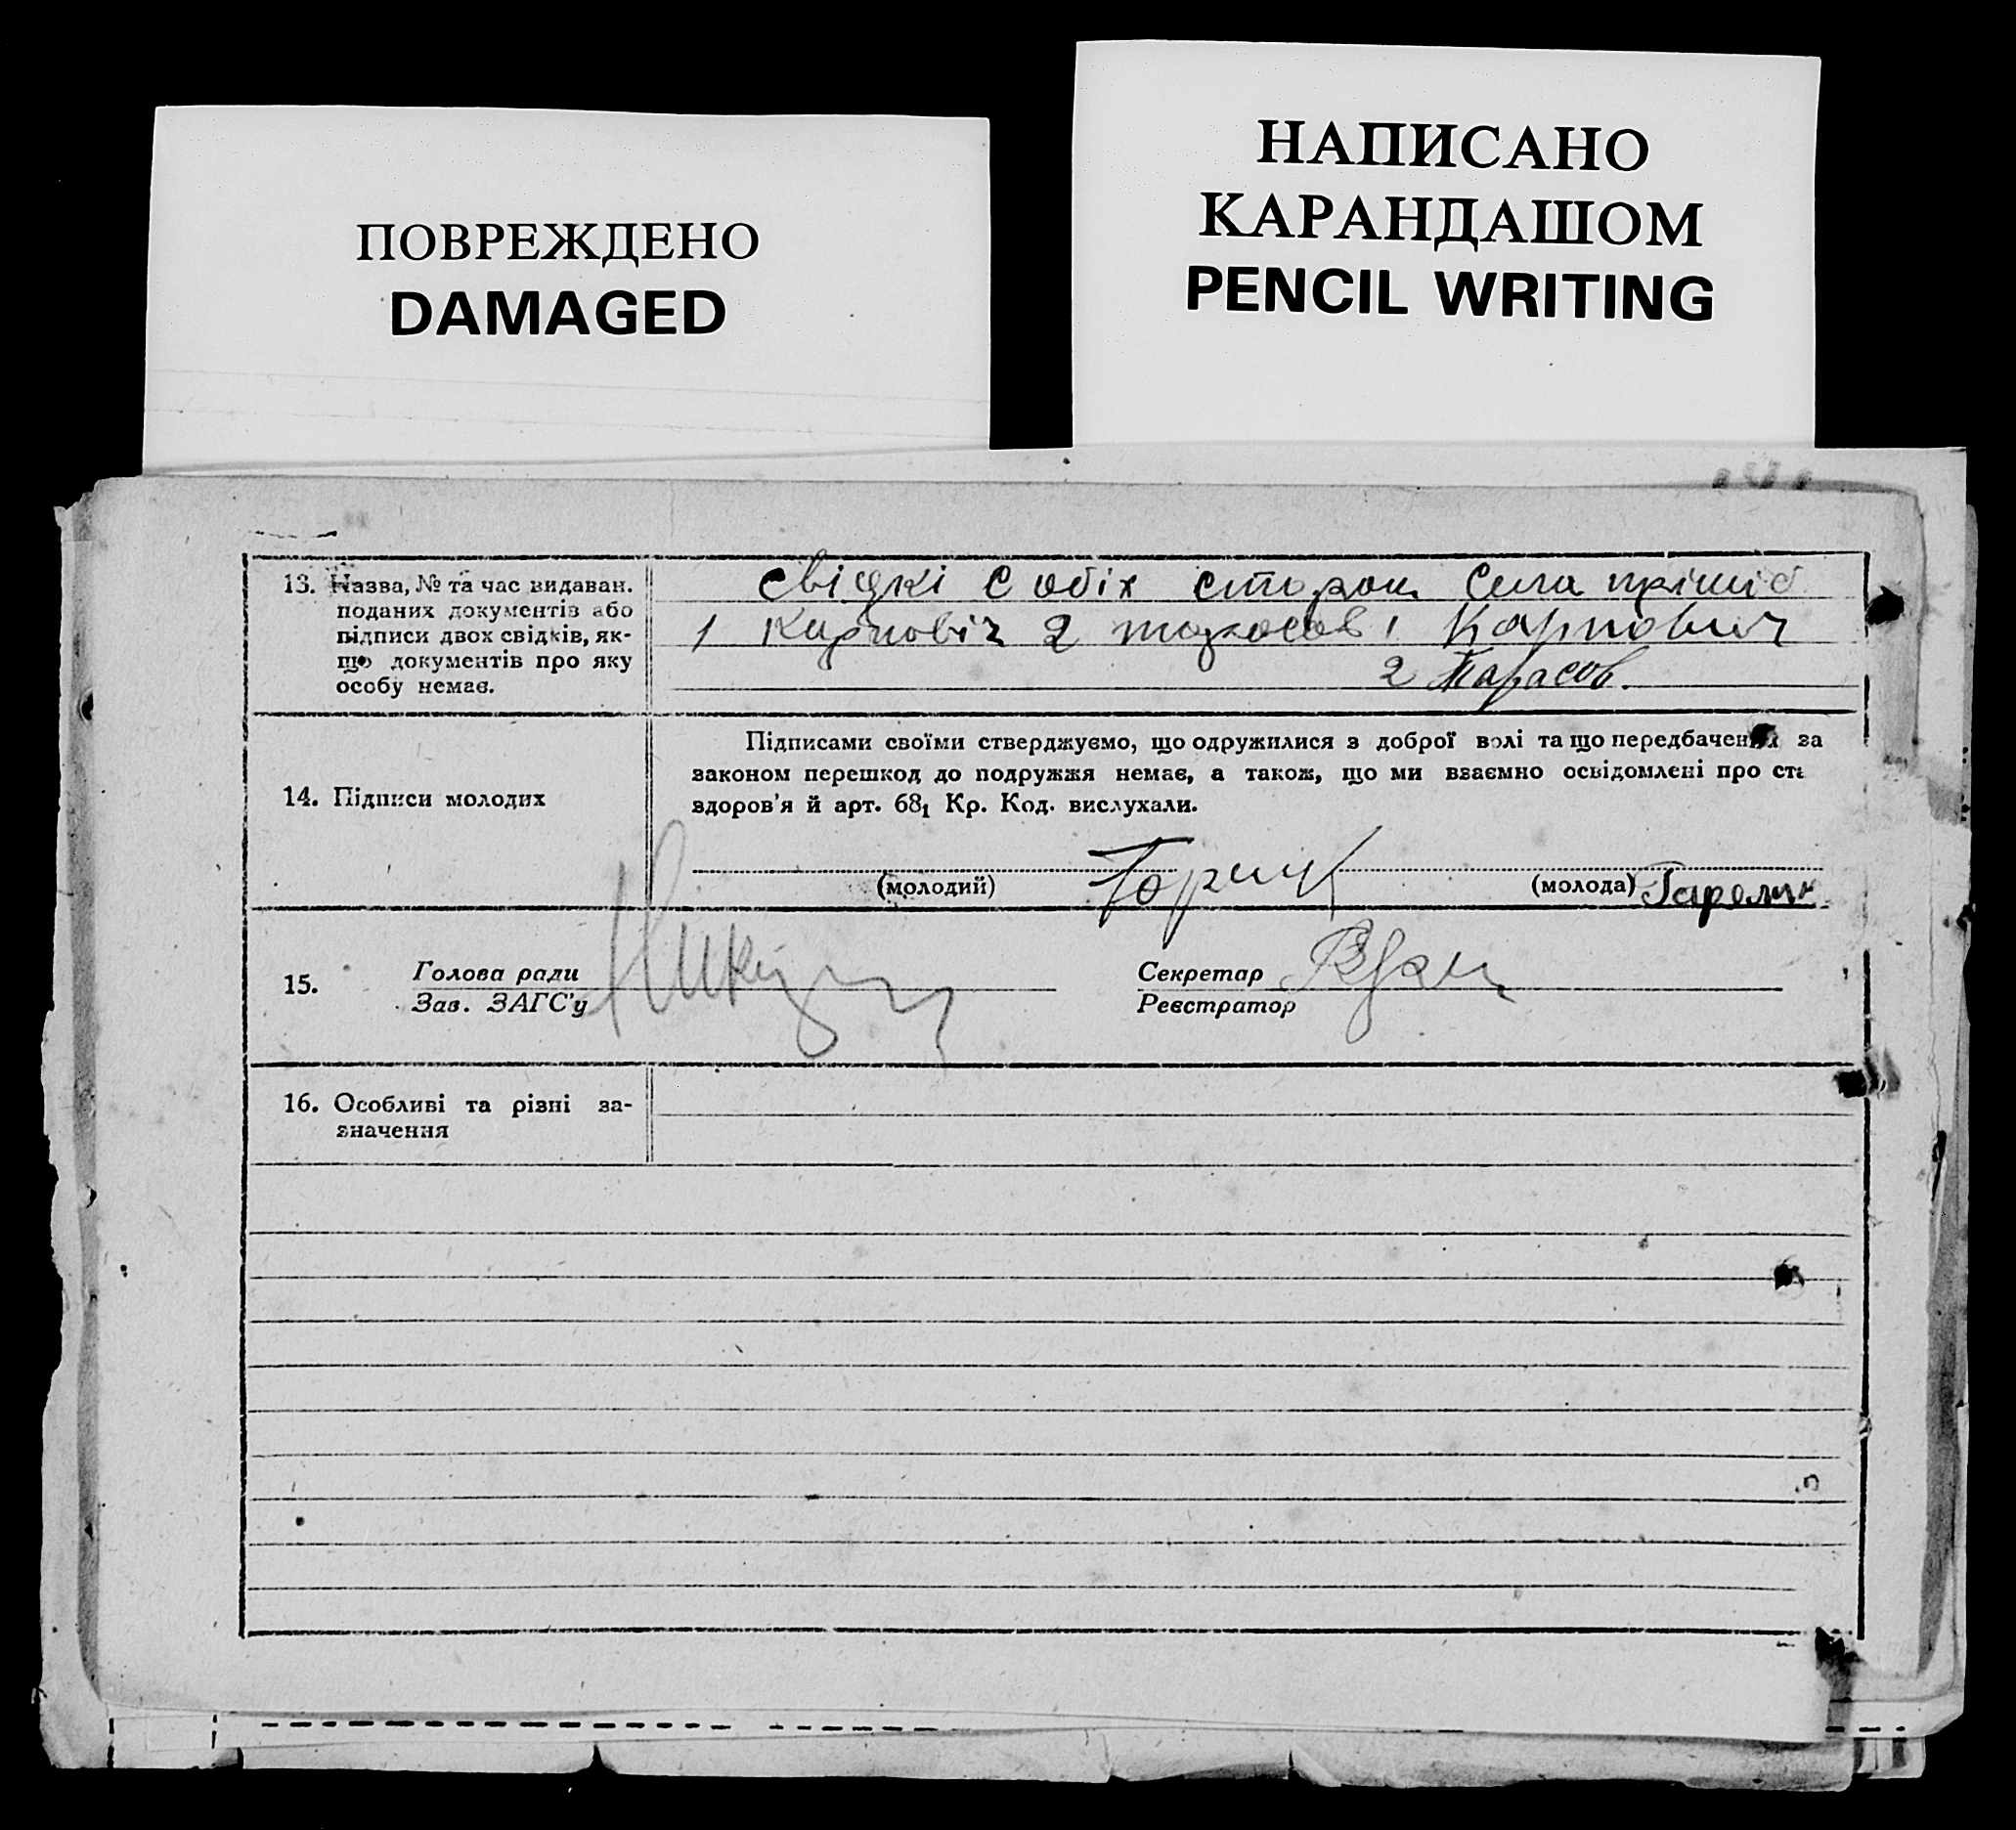 ПОВРЕЖДЕНО
DAMAGED
НАПИСАНО
КАРАНДАШОМ
PENCIL WRITING
13. Назва, № та час видаван.
поданих документів або
підписи двох свідків, як-
що документів про яку
особу немає.
свідкі с обіх сторон Села
1 Карповіч 2 тарасов 1 Карпович
2 Тарасов.
14. Підписи молодих
Підписами своїми стверджуємо, що одружилися з доброї волі та що передбачених за
законом перешкод до подружжя немає, а також, що ми взаємно освідомлені про ст
здоров'я й арт. 68₁ Кр. Код. вислухали.
(молодий)
(молода) Гарелик
15.
Голова ради
Зав. ЗАГС'у
Секретар
Реєстратор
16. Особливі та різні за-
значення